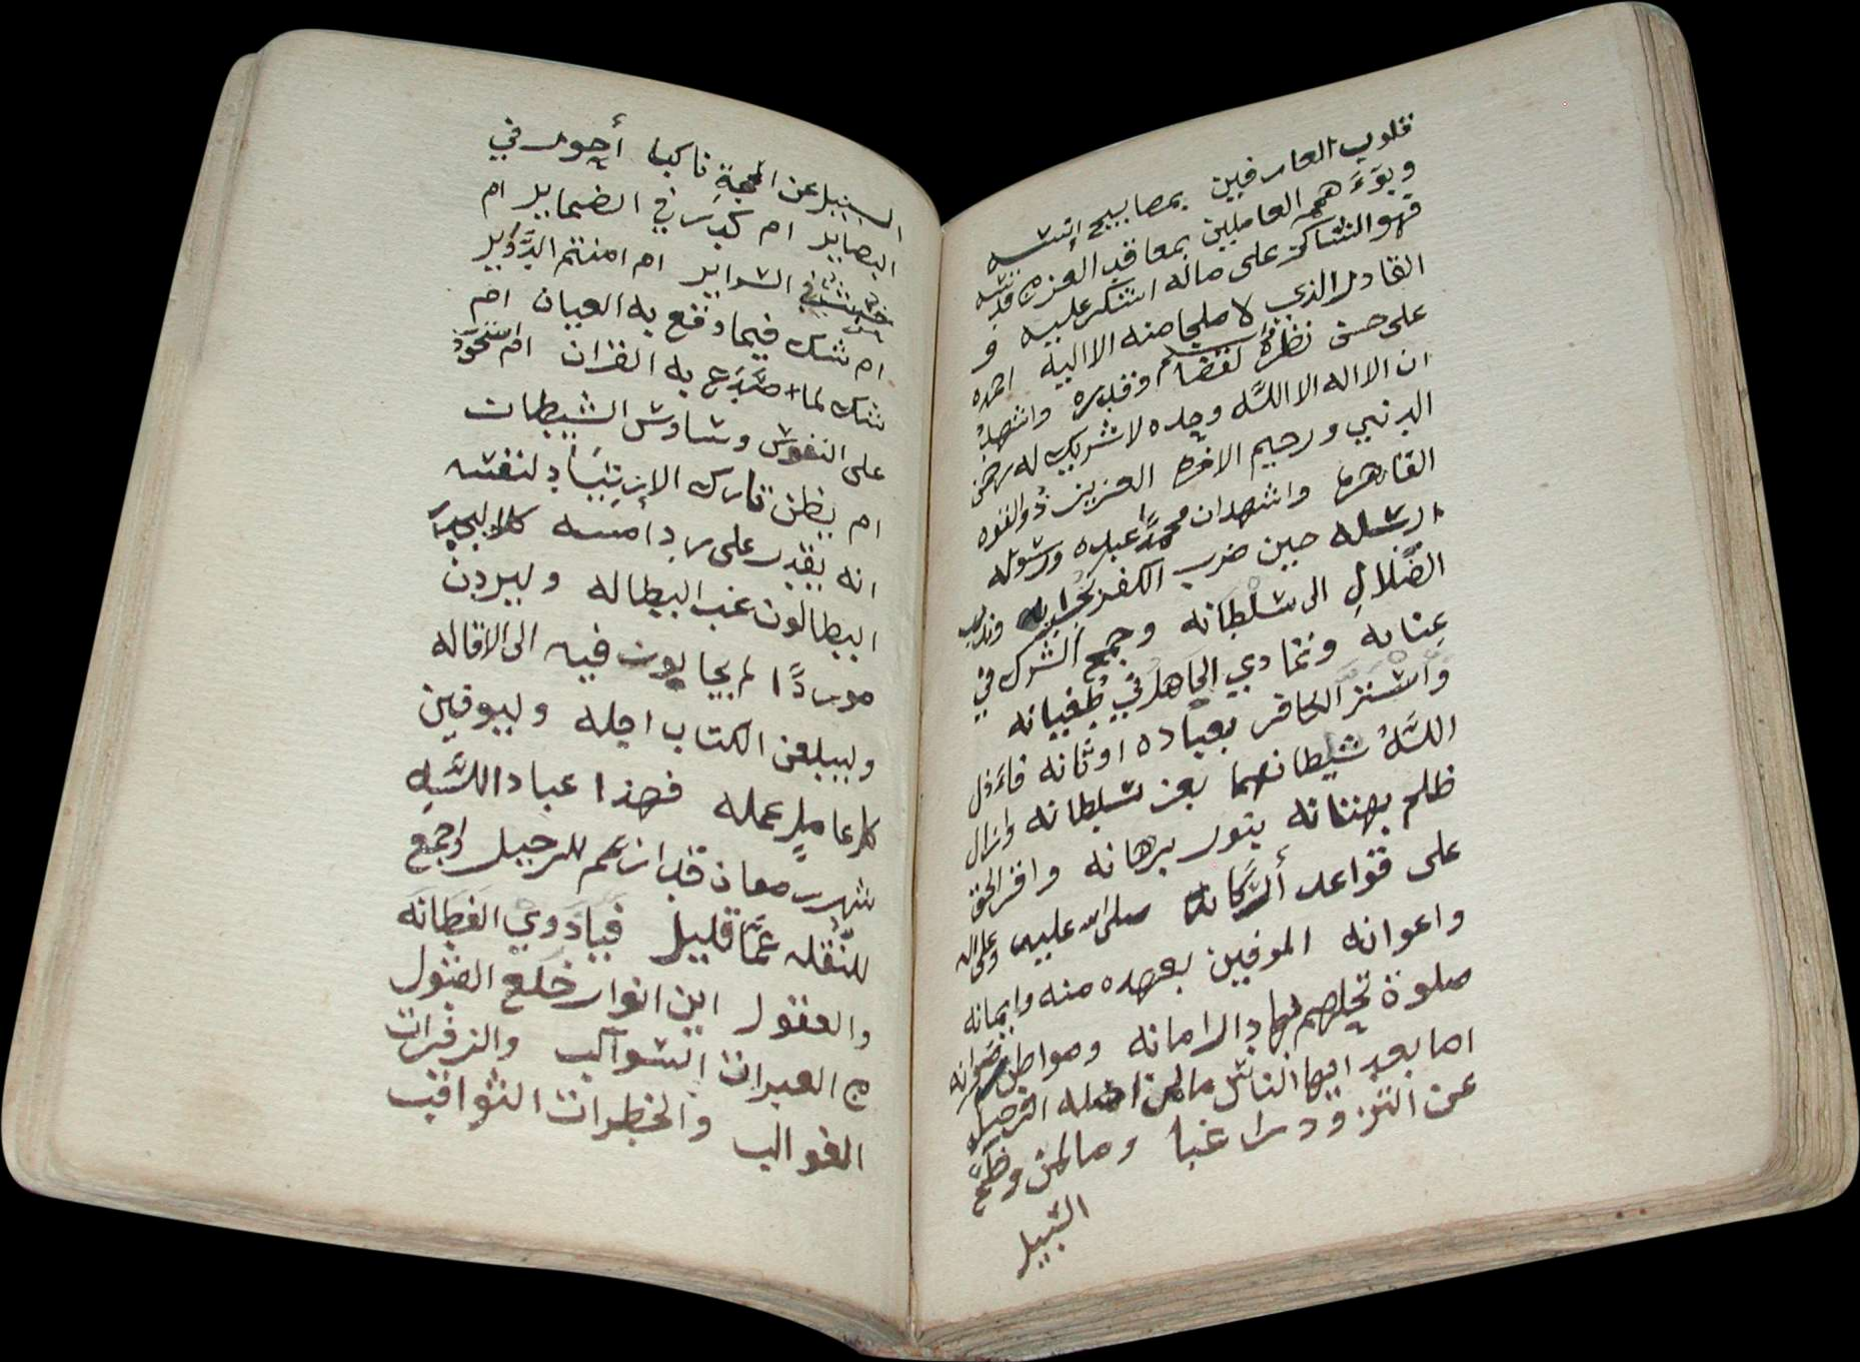 قلوب العارفين بمصابيح انسه
وبوّءَ همم العاملين بمعاقد العز قدسه
فهو الشاكر على ماله اشكر عليه و
القادر الذي لا ملجا منه الا اليه احمده
على حسن نظره لقضايه وقدره واشهد
ان لا اله الا اللّه وحده لا شريك له رحمن
الدنيي ورحيم الاخره العزيز ذو القوه
القاهره واشهد ان محمدًا عبده ورسوله
ارسله حين ضرب الكفر بجرانه وندب
الضَّلالِ الى سلطانه وجمع الشرك في
عِنانه وتمادي الجاهل في طُغيانه
واستنز الكافر بعباده اوثانه فاَذل
اللّهُ شيطانهما بعز سلطانه وازال
ظلم بهتانه بنور برهانه واقر الحق
على قواعد أركانه صلى الله عليه وعلى اله
واعوانه الموفين بعهده منه وايمانه
صلوة تحلهم بها دار امانه ومواطن رضوانه
اما بعد ايها الناس مالمن امله الرحيل
عن التزود راغبا ومالمن وضَح
السبيل
السبيل عن المحجةِ ناكبا أجور في
البصاير ام كدر في الضماير ام
في السراير ام امنتم الدَّوَاير
ام شك فيما وقع به العيان ام
شك لما صَدَع به القران ام استحوذ
على النفوس وساوس الشيطان
ام يظن تارك الازتيَادِ لنفسه
انه يقدر على رد أمسه كلا ليجدن
البطالون غب البطاله وليردن
موردًا لم يجابون فيه الى الاقاله
وليبلغن الكتاب اجله وليوفين
كل عاملٍ عمله فهذا عباد اللَّهِ
شهر رمضان قد ازمع للرحيل واجمع
للنُّقله عمَّا قليل فيا ذوي الفَطَانَه
والعقول اين انوار خلع القبول
ج العبرات السواكب والزفرات
الغوالب والخطرات الثواقب